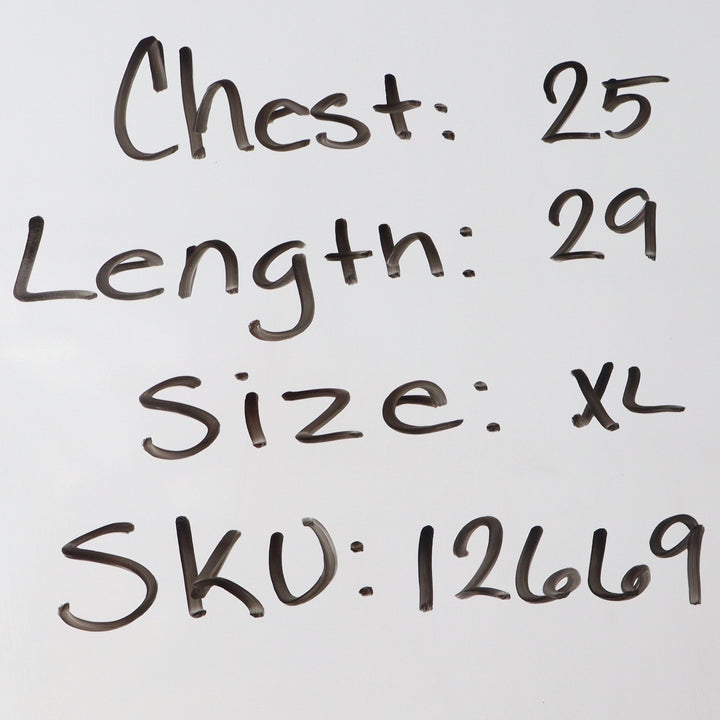 Chest: 25
Length: 29
Size: XL
SKU: 12669